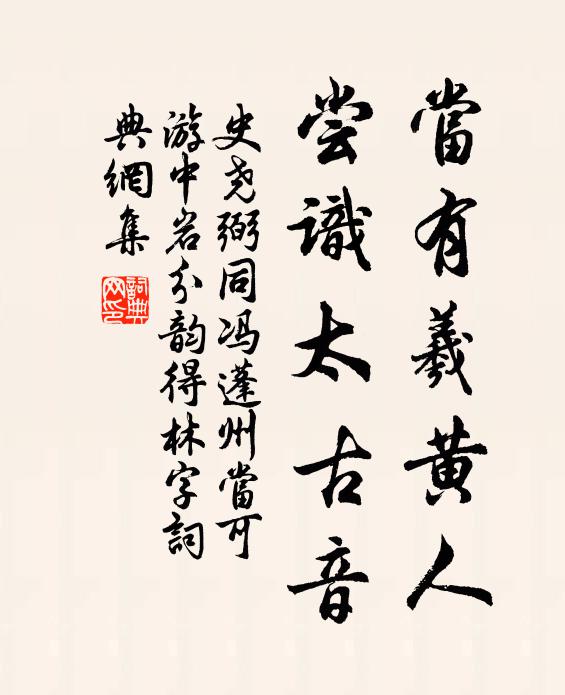 當有羲黄人
尝識太古音
史尧弼同冯蓬州當可
游中岩分韵得林字詞
典網集
詞典网印